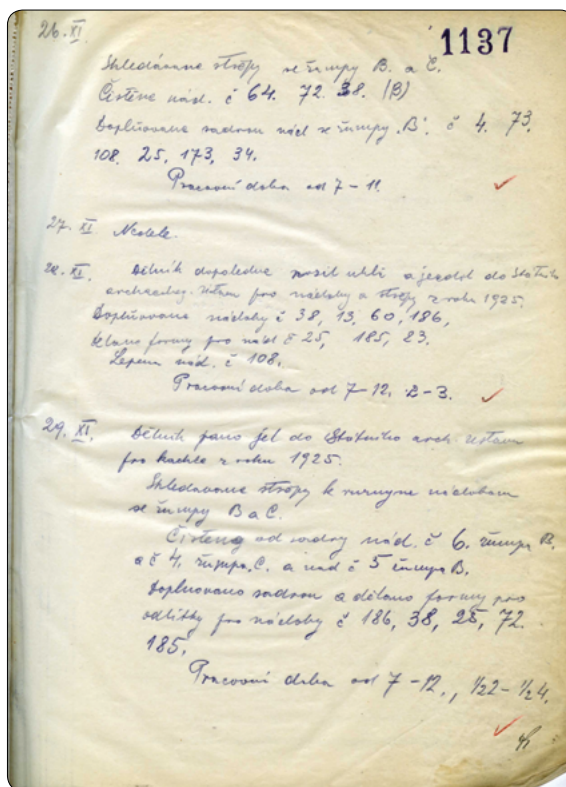 26. XI.
1137
Shledávane střepy ze žumpy B. a C.
Čistěne nád. č 64. 72. 38. (B)
Doplňovano sadrou nád ze žumpy „B“. č 4. 73.
108. 25, 173, 34.
Pracovní doba od 7 – 11.
27. XI Neděle.
28. XI. Dělník dopoledne nosil uhlí a jezdil do Státního
archaeolog. Ustavu pro nádoby a střepy z roku 1925.
Doplňovano nádoby č 38, 13, 60, 186,
dělano formy pro nád č 25, 185, 23.
Lepeno nád. č 108.
Pracovní doba od 7–12, 2–3.
29. XI. Dělník ráno jel do Státního arch. Ustavu
pro kachle z roku 1925.
Shledávane střepy k ruznym nádobam
ze žumpy B a C.
Čisteno od sadry nád. č 6. žumpa B.
a č 4. žumpa. C. a nád č 5 žumpa B.
Doplňovano sadrou a dělano formy pro
odlitky pro nádoby č 186, 38, 25, 72.
185.
Pracovní doba od 7 – 12., ½2 – ½4.